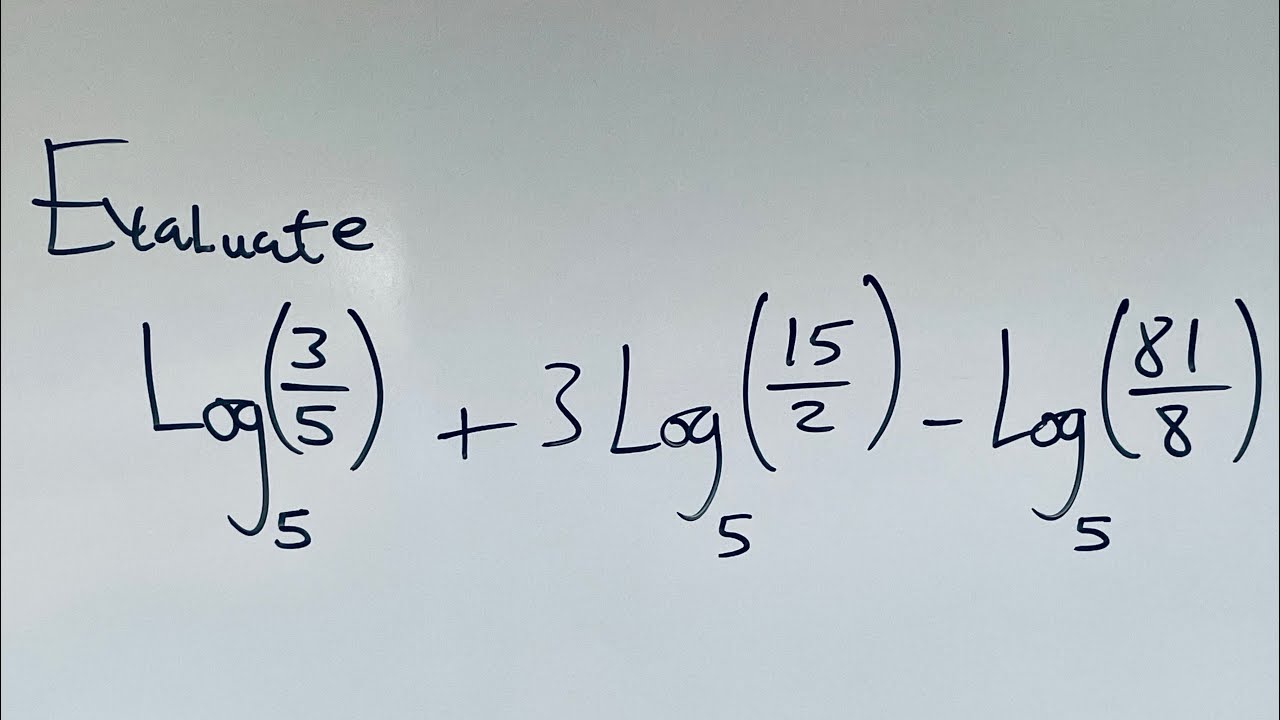 Evaluate
Log₅(3/5) + 3Log₅(15/2) - Log₅(81/8)